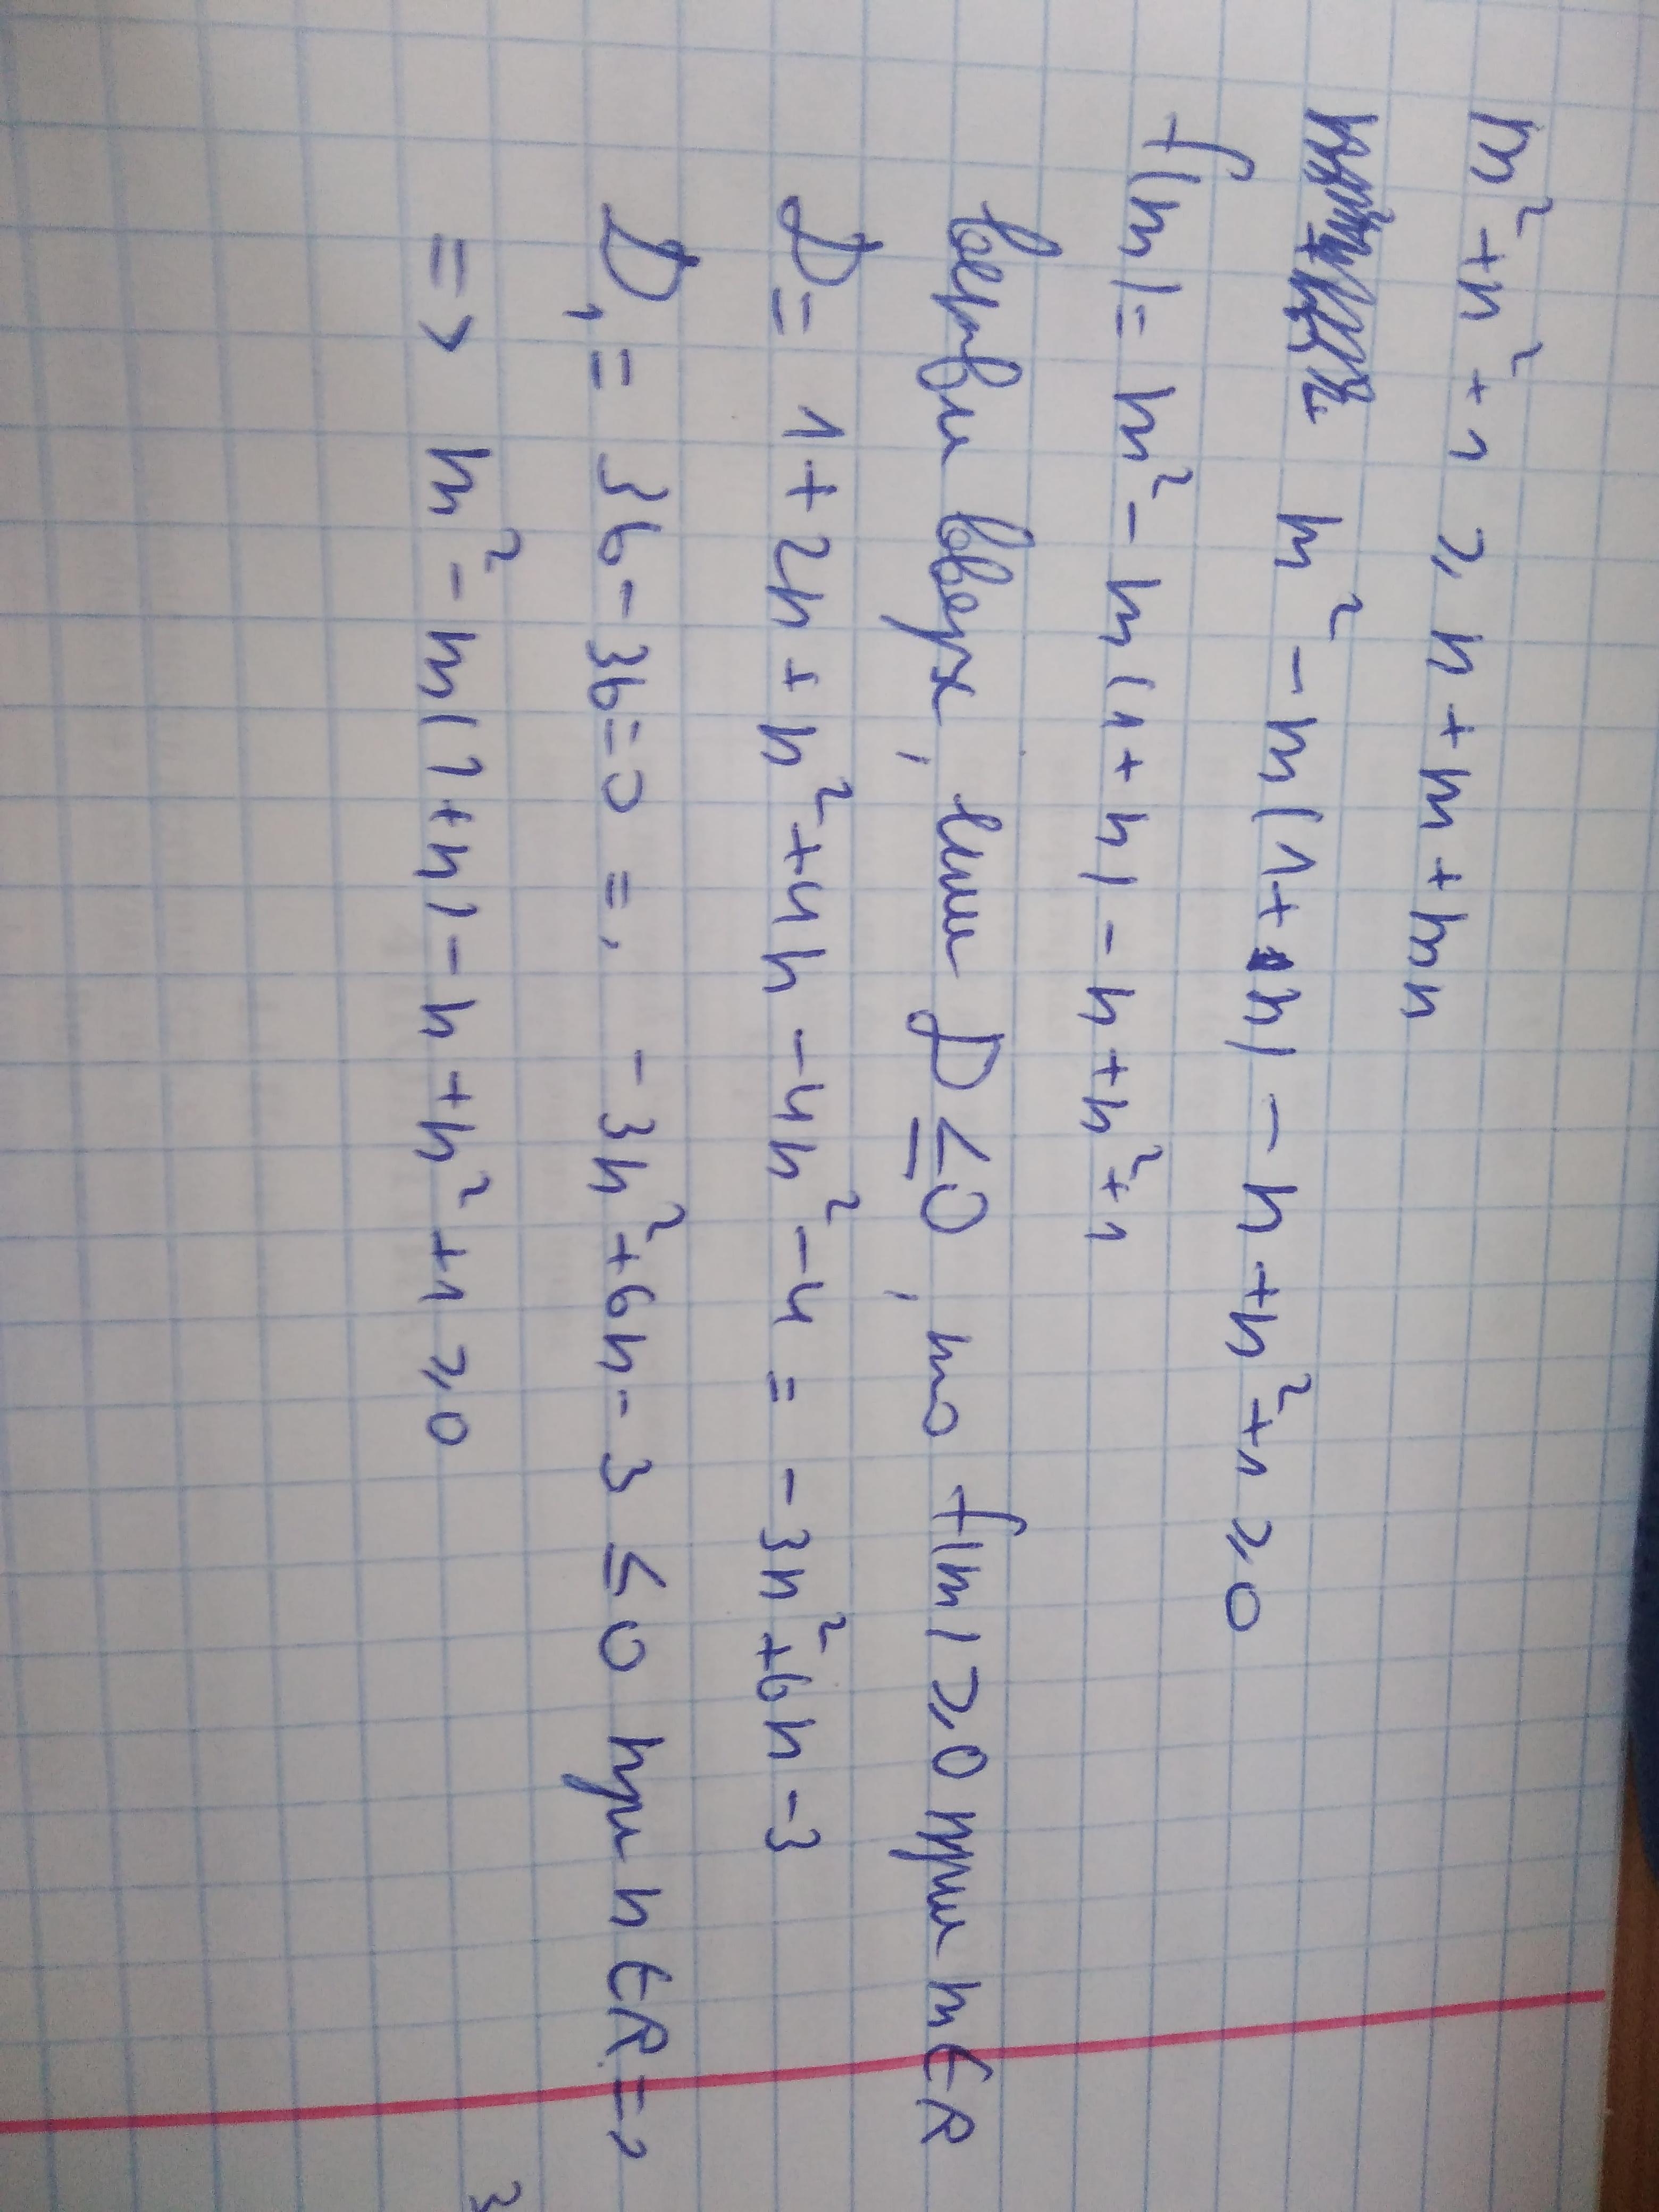 m² + n² + 1 ⩾ n + m + mn
m² - m(1+n) - n + n² + 1 ⩾ 0
f(m) = m² - m(1+n) - n + n² + 1
ветви вверх, если D ≤ 0, то f(m) ⩾ 0 при m ∈ R
D = 1 + 2n + n² + 4n - 4n² - 4 = -3n² + 6n - 3
D₁ = 36 - 36 = 0 => -3n² + 6n - 3 ≤ 0 при n ∈ R =>
=> m² - m(1+n) - n + n² + 1 ⩾ 0
3